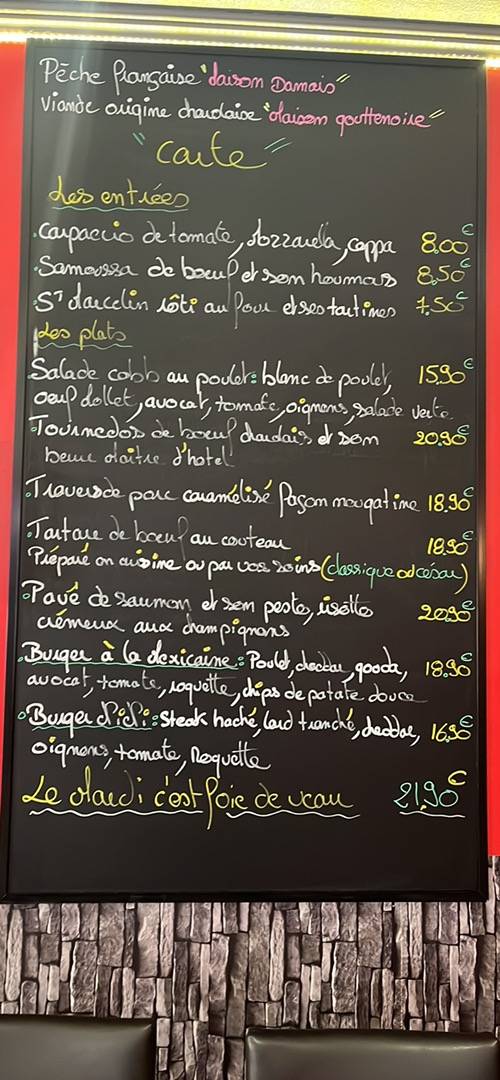 Pêche française "Maison Damais"
Viande origine charolaise "Maison gouttenoire"
"Carte"
Les entrées
.Carpaccio de tomate, Mozzarella, coppa 8.00€
.Samoussa de boeuf et son houmous 8,50€
.St Marcelin rôti au four et ses tartines 7.50€
Les plats
.Salade cobb au poulet: blanc de poulet, 15,90€
oeuf Mollet, avocat, tomate, oignons, salade verte.
.Tournedos de boeuf charolais et son 20.90€
beurre Maître d'hotel
.Travers de porc caramélisé façon nougatine 18.90€
.Tartare de boeuf au couteau 18.90€
Préparé en cuisine ou par vos soins (classique ou césar)
.Pavé de saumon et son pesto, risotto 20.90€
crémeux aux champignons
.Burger à la Mexicaine: Poulet, cheddar, gouda, 18.90€
avocat, tomate, roquette, chips de patate douce
.Burger Didi: Steak haché, lard tranché, cheddar, 16.90€
oignons, tomate, Roquette
Le Mardi c'est Foie de veau 21.90€